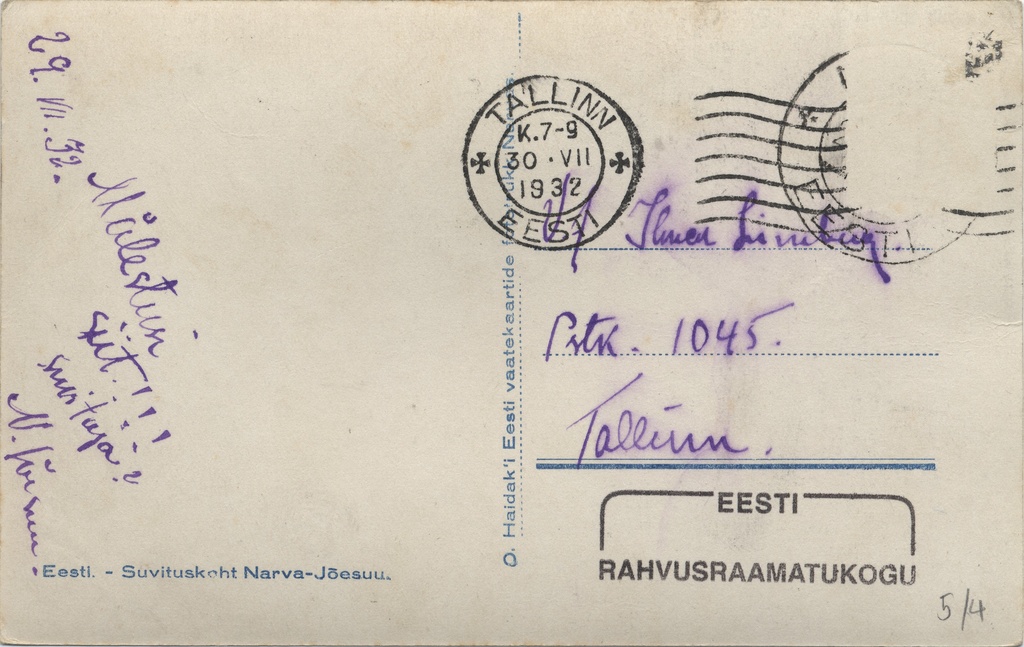 29. VII. 32.
Mälestusi
siit!!!
suvitaja
N.
Eesti. - Suvituskoht Narva-Jõesuu.
O. Haidak'i Eesti vaatekaartide
TALLINN
K. 7-9
30 · VII
1932
EESTI
EESTI
Pstk. 1045.
Tallinn.
EESTI
RAHVUSRAAMATUKOGU
5/4